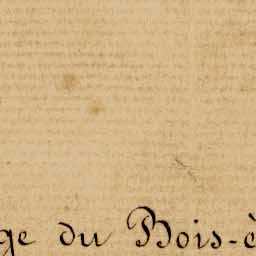 ge du Bois-è